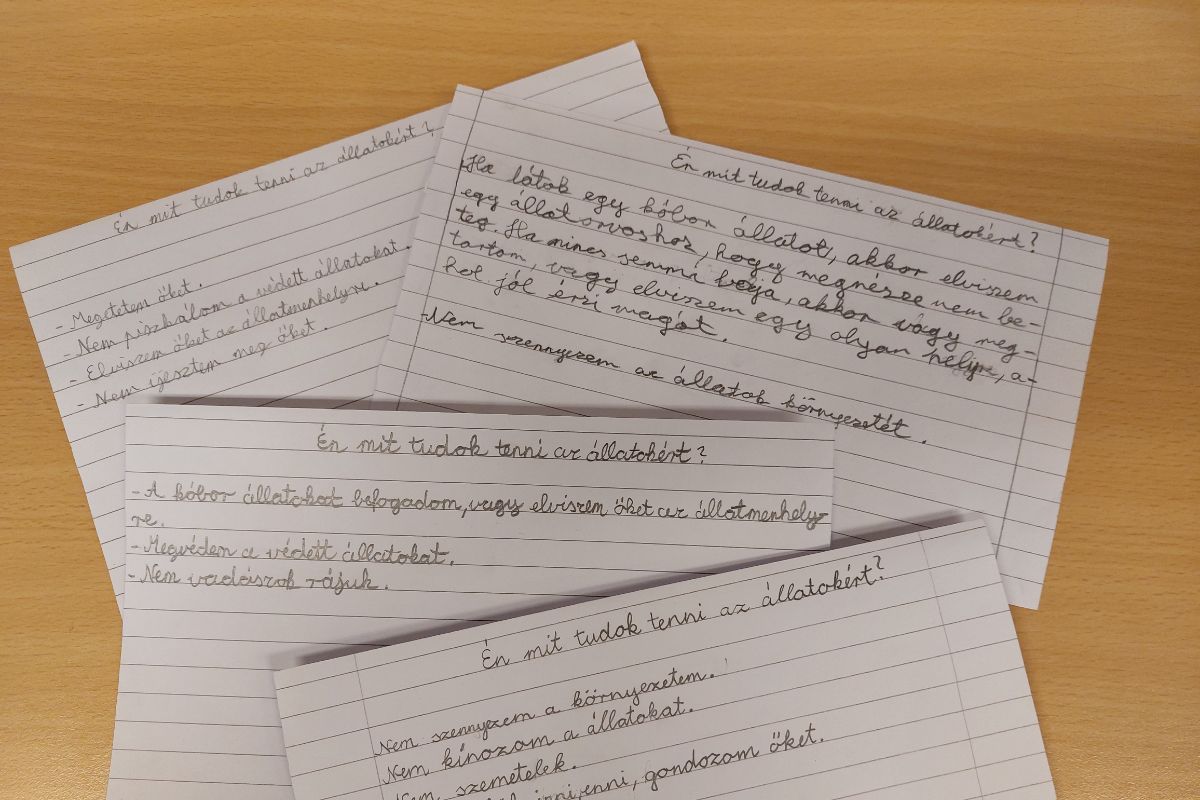 Én mit tudok tenni az állatokért?
- Megetetem őket.
- Nem piszkálom a védett állatokat.
- Elviszem őket az állatmenhelyre.
- Nem ijesztem meg őket.
Én mit tudok tenni az állatokért?
-Ha látok egy kóbor állatot, akkor elviszem
egy állatorvoshoz, hogy megnézze nem be-
teg. Ha nincs semmi baja, akkor vagy meg-
tartom, vagy elviszem egy olyan helyre, a-
hol jól érzi magát.
-Nem szennyezem az állatok környezetét.
Én mit tudok tenni az állatokért?
- A kóbor állatokat befogadom, vagy elviszem őket az állatmenhely-
re.
- Megvédem a védett állatokat.
- Nem vadászok rájuk.
Én mit tudok tenni az állatokért?
Nem szennyezem a környezetem.
Nem kínozom a állatokat.
Nem szemetelek.
inni, enni, gondozom őket.